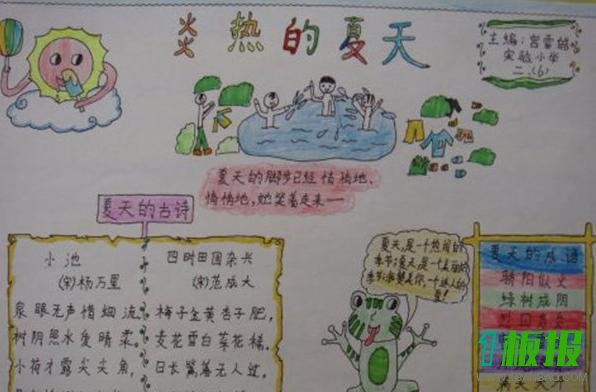 炎热的夏天
主编:宫雪
实验小学
二.(6)
夏天的脚步已经悄悄地、
悄悄地,她笑着走来——
夏天的古诗
小池
(宋)杨万里
泉眼无声惜细流,
树阴照水爱晴柔。
小荷才露尖尖角,
四时田园杂兴
(宋)范成大
梅子金黄杏子肥,
麦花雪白菜花稀。
日长篱落无人过,
夏天,是一个热闹的
季节;夏天是一个美丽的
季节;一个迷人的
夏天的成语
骄阳似火
绿树成阴
烈日炎炎
板报